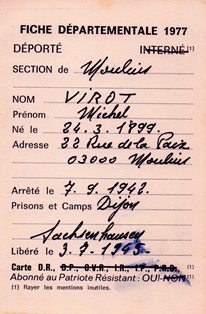 FICHE DÉPARTEMENTALE 1977
DÉPORTÉ INTERNÉ (1)
SECTION de Moulins
NOM VIROT
Prénom Michel
Né le 24.3.1899.
Adresse 22 Rue de la Paix
03000 Moulins
Arrêté le 7.9.1942.
Prisons et Camps Dijon
Sachsenhausen
Libéré le 3.7.1945
Carte D.R., G.P., C.V.R., I.R., I.P., P.R.O., (1)
Abonné au Patriote Résistant : OUI-NON (1)
(1) Rayer les mentions inutiles.